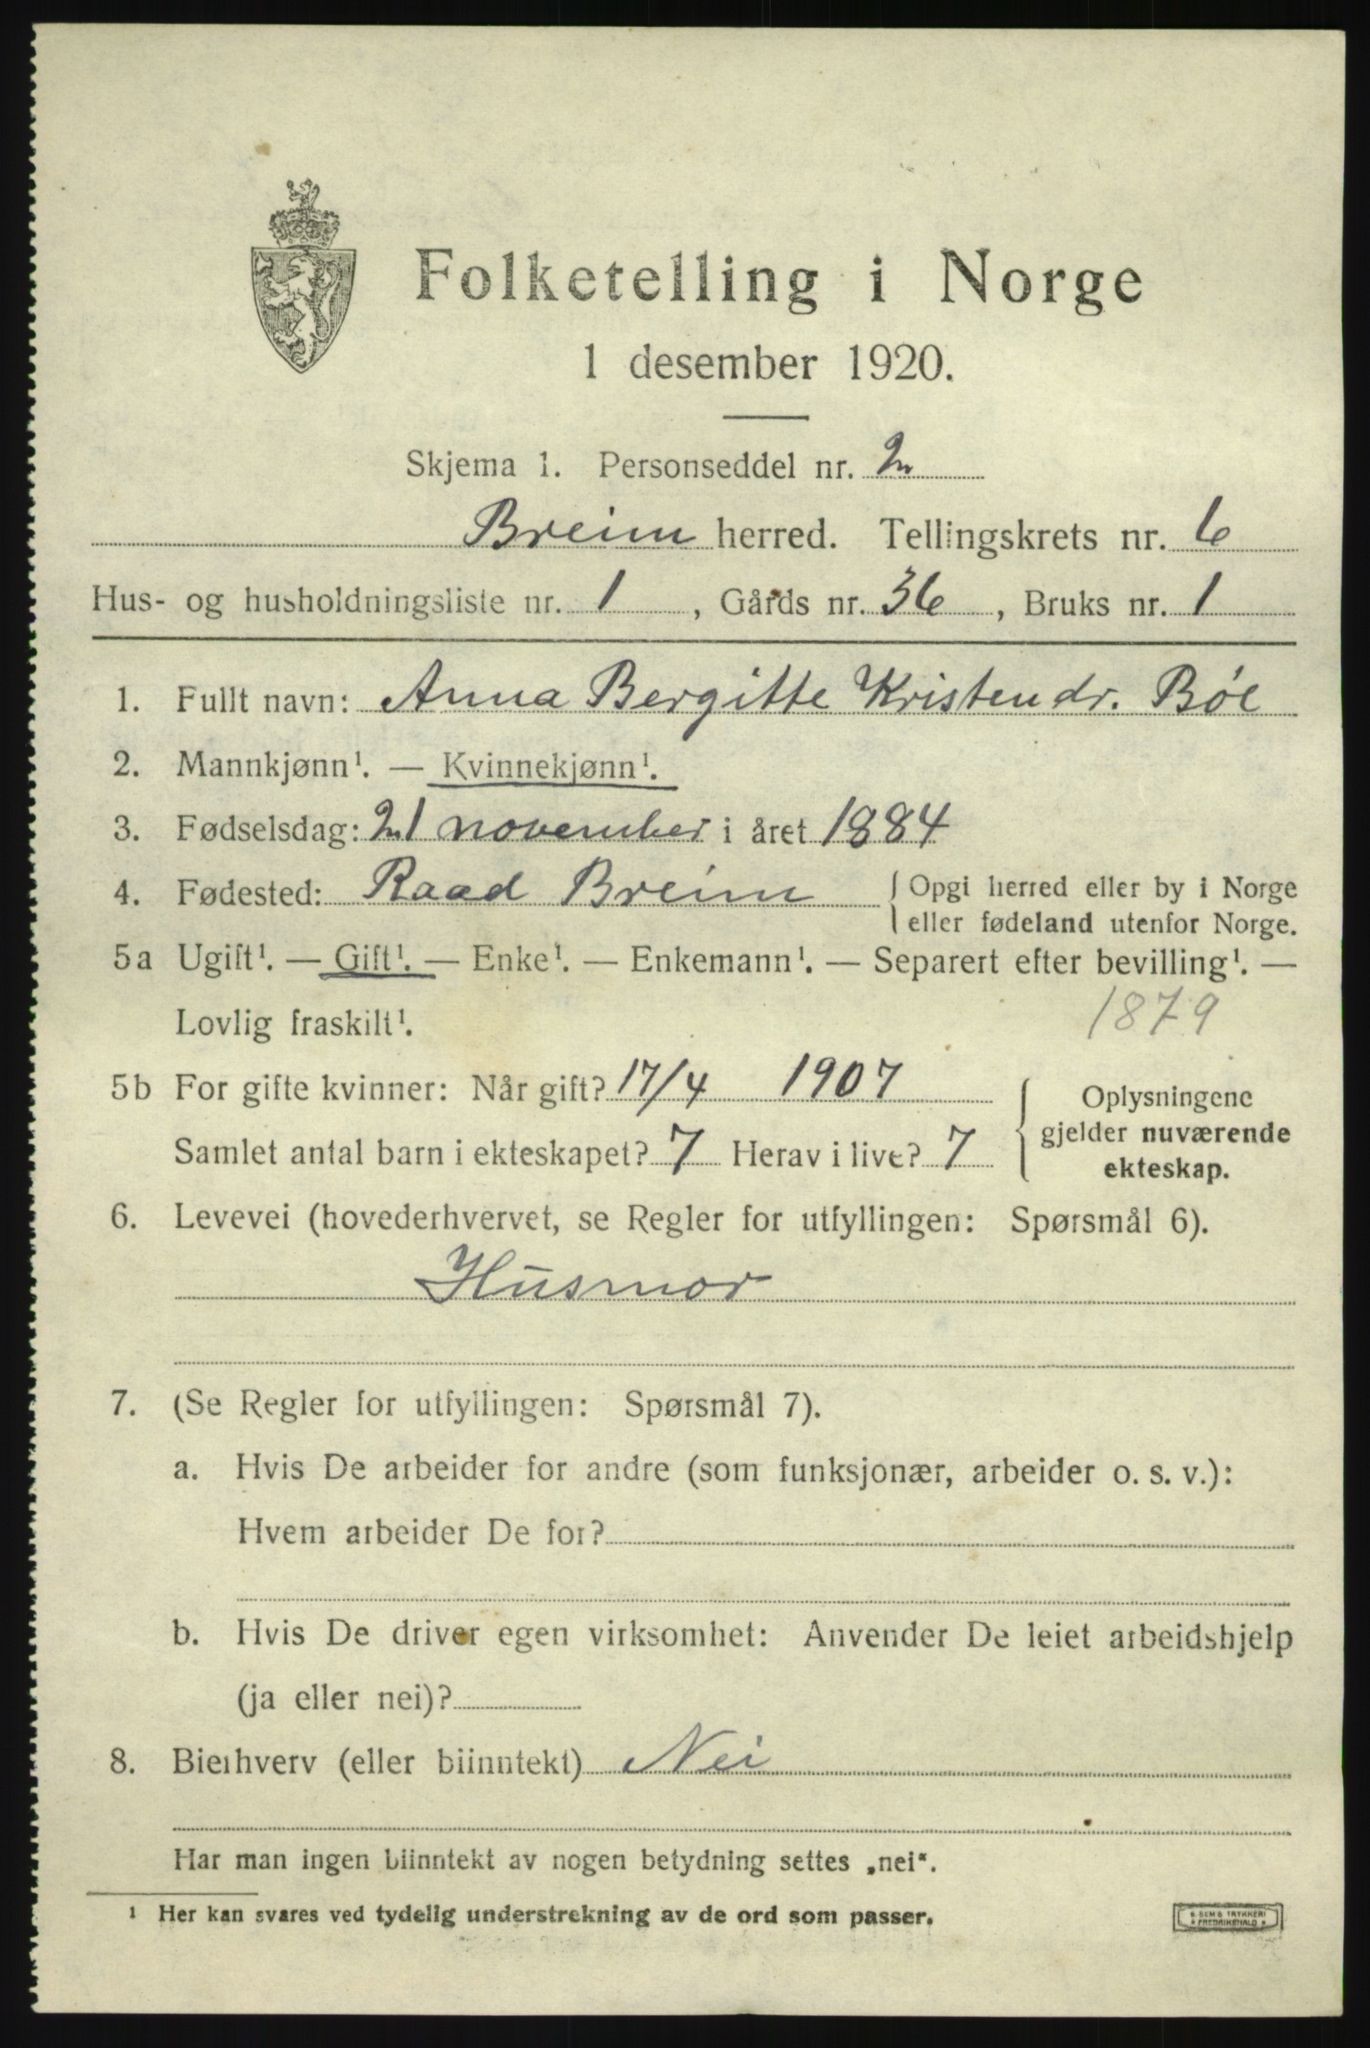 Folketelling i Norge
1 desember 1920.
Skjema 1. Personseddel nr. 2
Breim herred. Tellingskrets nr. 6
Hus- og husholdningsliste nr. 1, Gårds nr. 36, Bruks nr. 1
1. Fullt navn: Anna Bergitte Kristendr. Bøe
2. Mannkjønn¹. — Kvinnekjønn¹.
3. Fødselsdag: 21 november i året 1884
4. Fødested: Raad Breim { Opgi herred eller by i Norge
eller fødeland utenfor Norge.
5a Ugift¹. — Gift¹. — Enke¹. — Enkemann¹. — Separert efter bevilling¹. —
Lovlig fraskilt¹. 1879
5b For gifte kvinner: Når gift? 17/4 1907 { Oplysningene
gjelder nuværende
ekteskap.
Samlet antal barn i ekteskapet? 7 Herav i live? 7
6. Levevei (hovederhvervet, se Regler for utfyllingen: Spørsmål 6).
Husmor
7. (Se Regler for utfyllingen: Spørsmål 7).
a. Hvis De arbeider for andre (som funksjonær, arbeider o. s. v.):
Hvem arbeider De for?
b. Hvis De driver egen virksomhet: Anvender De leiet arbeidshjelp
(ja eller nei)?
8. Bierhverv (eller biinntekt) Nei
Har man ingen biinntekt av nogen betydning settes „nei“.
¹ Her kan svares ved tydelig understrekning av de ord som passer.
E. SEMS TRYKKERI
FREDRIKSHALD